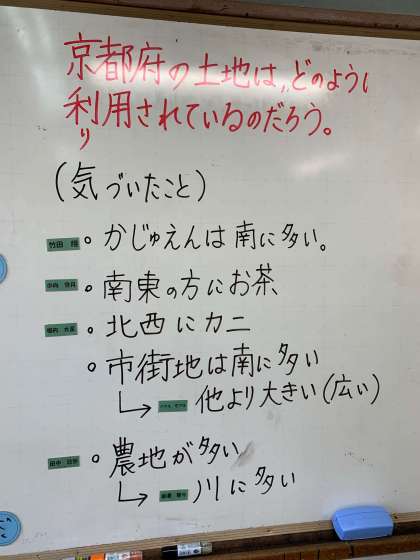 京都府の土地は、どのように
利用されているのだろう。
り
(気づいたこと)
。かじゅえんは南に多い。
。南東の方にお茶
。北西にカニ
。市街地は南に多い
↳ 他より大きい(広い)
。農地が多い
↳ 川に多い